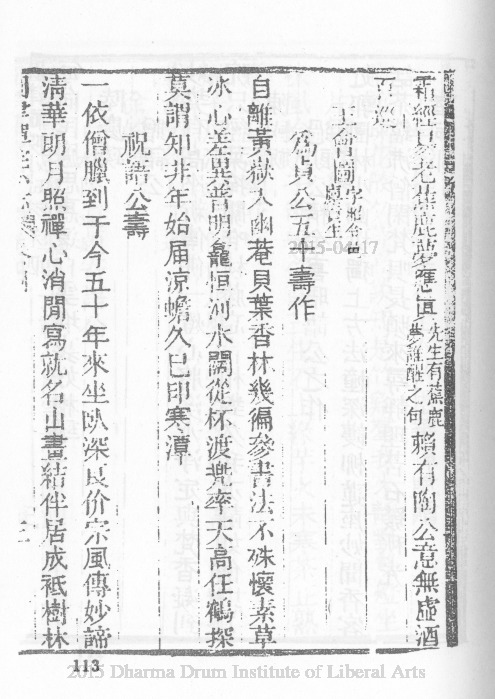 霜經日參老蕉鹿夢應眞先生有蕉鹿夢誰醒之句賴有陶公意無虛酒
百巡
王會圖字熙令邑庠生
爲貞公五十壽作
自離黃嶽入幽菴貝葉香林幾徧參書法不殊懷素草
冰心差異普明龕恒河水闊從杯渡兠率天高任鶴探
莫謂知非年始届涼蟾久已印寒潭
祝語公壽
一依僧臘到于今五十年來坐臥深良价宗風傳妙諦
清華朗月照禪心消閒寫就名山畫結伴居成祇樹林
2015-04-17
113
2015 Dharma Drum Institute of Liberal Arts